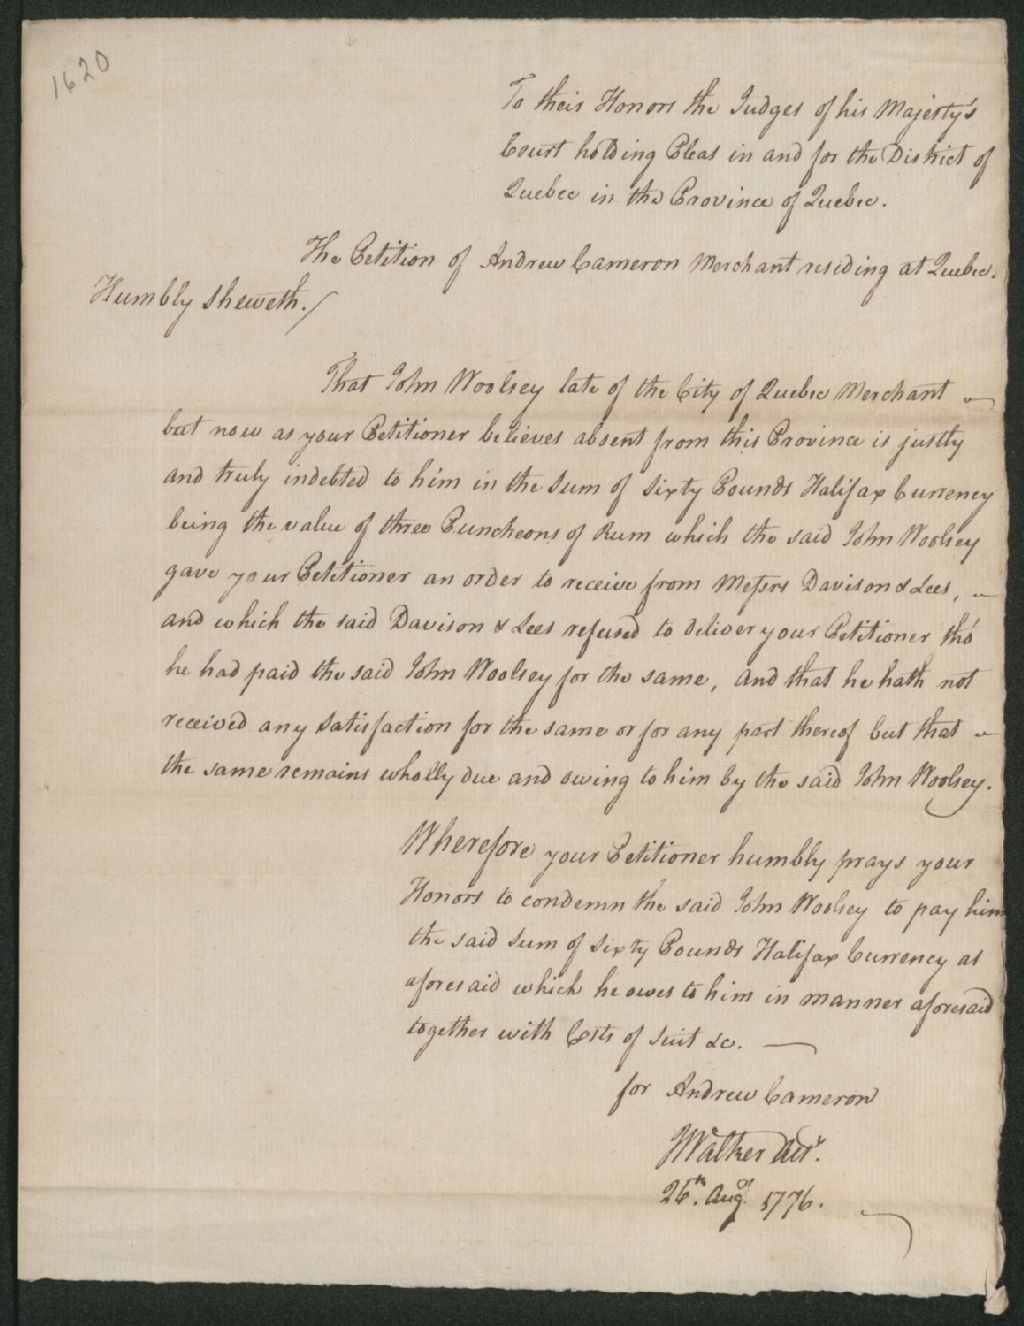 1620
To their Honors the Judges of his Majesty's
Court holding Pleas in and for the District of
Quebec in the Province of Quebec.
The Petition of Andrew Cameron Merchant residing at Quebec.
Humbly sheweth./
That John Woolsey late of the City of Quebec Merchant
but now as your Petitioner believes absent from this Province is justly
and truly indebted to him in the Sum of Sixty Pounds Halifax Currency
being the value of three Puncheons of Rum which the said John Woolsey
gave your Petitioner an order to receive from Messrs Davison & Lees,
and which the said Davison & Lees refused to deliver your Petitioner tho'
he had paid the said John Woolsey for the same, and that he hath not
received any Satisfaction for the same or for any part thereof but that
the same remains wholly due and owing to him by the said John Woolsey.
Wherefore your Petitioner humbly prays your
Honors to condemn the said John Woolsey to pay him
the said Sum of Sixty Pounds Halifax Currency as
aforesaid which he owes to him in manner aforesaid
together with Costs of Suit &c.
for Andrew Cameron
JWalker Att.
26th. Augt 1776.